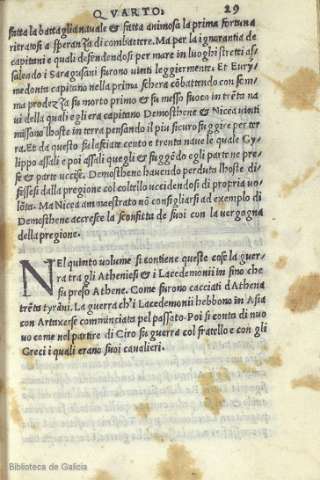 QVARTO.
29
fatta la battaglia nauale & fatta animosa la prima fortuna
ritratosi a speranza di combattere. Ma per la ignorantia de
capitani e quali defendendosi per mare in luoghi stretti as/
saleado i Saragusani furono uinti leggiermente. Et Eury/
medonte capitano nella prima schera cōbattendo con sem/
ma prodezza su morto primo & fu messo fuoco in trēta na/
ui della quali egli era capitano Demosthene & Nicea uinti
missono lhoste in terra pensando il piu sicuro fuggire per ter
ra. Et da questo fu lasciate cento e trenta naui le quale Gy/
lippo assali e poi assali quegli & fuggēdo egli parte ne pre/
se & parte uccise. Demosthene hauendo perduto lhoste di
fissesi dalla pregione col coltello uccidendosi di propria uo/
lōta. Ma Nicea ammaestrato nō consigliarsi ad exemplo di
Demosthene accresse la sconfitta de suoi con la uergogna
della pregione.
NEl quinto uolume si contiene queste cose la guer/
ra tra gli Atheniesi & i Lacedemonii im sino che
fu preso Athene. Come furono cacciati d Athena
trēta tyrāni. La guerra ch'i Lacedemonii hebbono in Asia
con Artaxerse comminciata pel passato. Poi si conta di nuo
uo come nel partire di Ciro fu guerra col fratello e con gli
Greci i quali erano suoi caualieri.
Biblioteca de Galicia